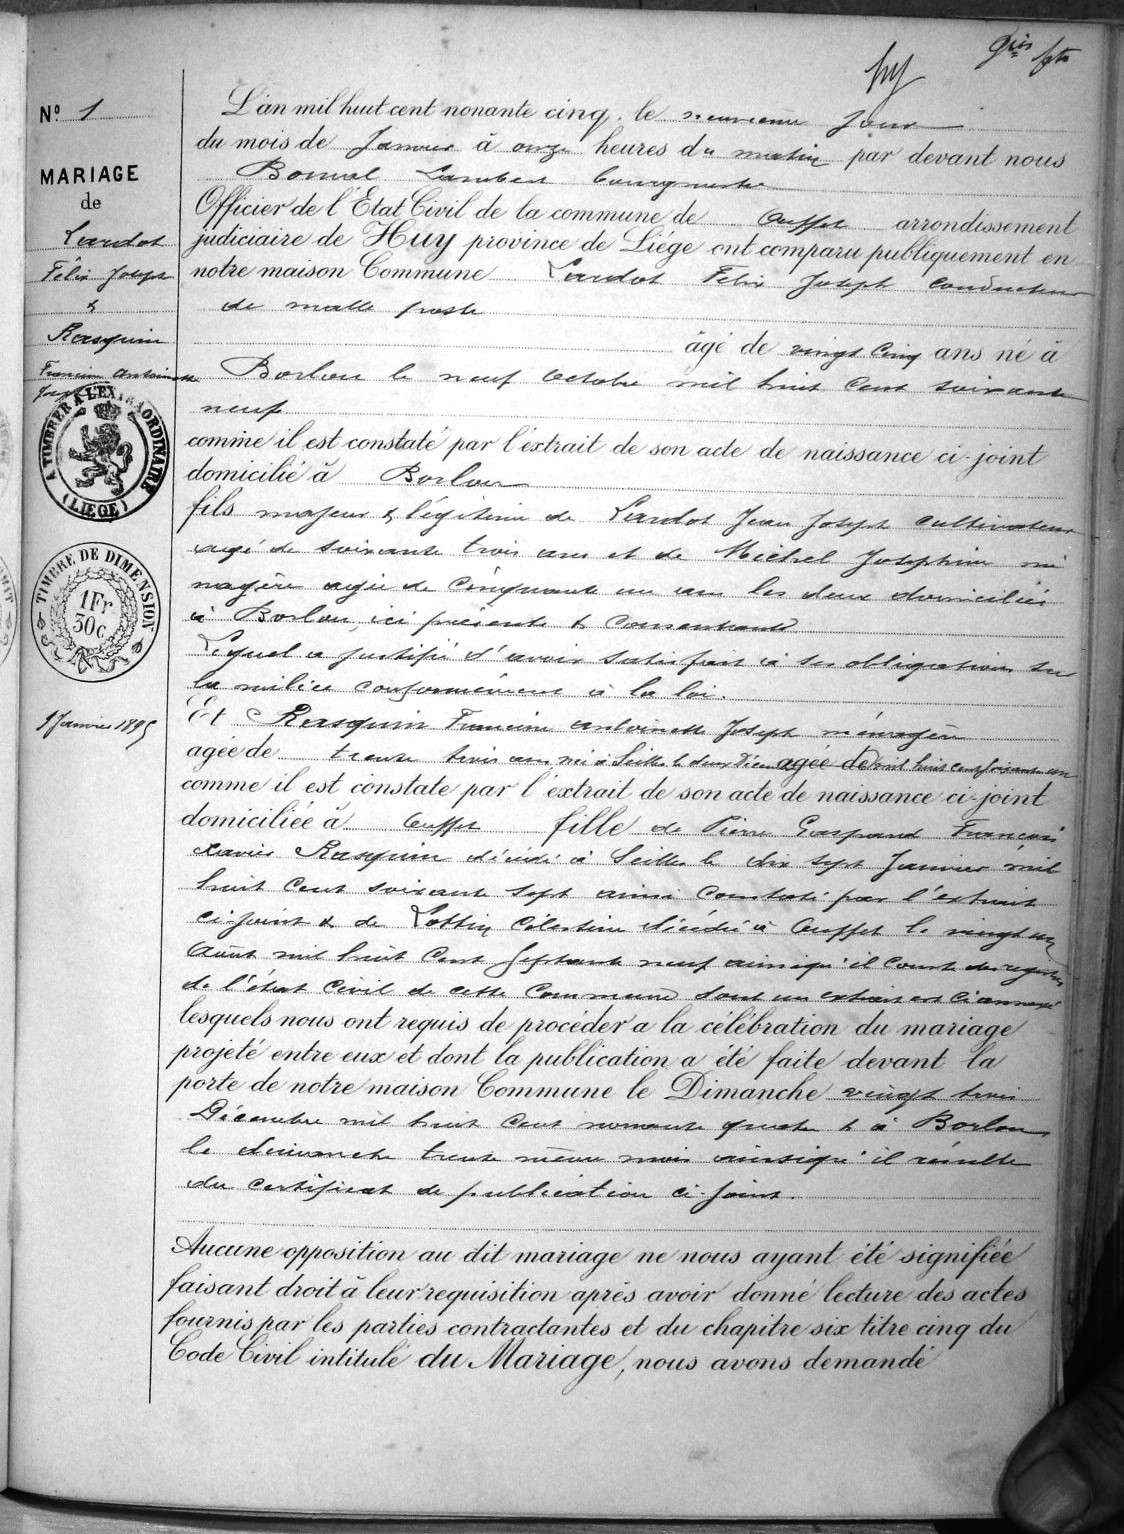 N° 1
MARIAGE
de
Lardot
Félix Joseph
&
Rasquin
Francine Antoinette
Joseph
A TIMBRER A L'EXTRAORDINAIRE
(LIEGE)
TIMBRE DE DIMENSION
1Fr
30c
9 Janvier 1895
L'an mil huit cent nonante cinq. le neuvième jour
du mois de Janvier à onze heures du matin par devant nous
Bonmal Lambert bourgmestre
Officier de l'État Civil de la commune de Ouffet arrondissement
judiciaire de Huy province de Liége ont comparu publiquement en
notre maison Commune Lardot Félix Joseph conducteur
de malle poste
âgé de vingt cinq ans né à
Borlon le neuf octobre mil huit cent soixante
neuf
comme il est constaté par l'éxtrait de son acte de naissance ci-joint
domicilié à Borlon
fils majeur & légitime de Lardot Jean Joseph cultivateur
agé de soixante trois ans et de Michel Joséphine mé
nagère agée de cinquante un ans les deux domiciliés
à Borlon, ici présents & consentants
Lequel a justifié d'avoir satisfait à ses obligations sur
la milice conformément à la loi.
Et Rasquin Francine antoinette Joseph ménagère
agée de trente trois ans née à Seilles le deux Décembre agée de mil huit cent soixante un
comme il est constaté par l'éxtrait de son acte de naissance ci-joint
domiciliée à Ouffet fille de Pierre Gaspard François
xavier Rasquin décédé à Seilles le dix sept Janvier mil
huit cent soixante sept ainsi constaté par l'extrait
ci-joint & de Lottin Célestine décédée à Ouffet le vingt un
Août mil huit cent septante neuf ainsiqu'il conste des registres
de l'état civil de cette Commune dont un extrait est ci annexé
lesquels nous ont requis de procéder a la célébration du mariage
projeté entre eux et dont la publication a été faite devant la
porte de notre maison Commune le Dimanche vingt trois
Décembre mil huit cent nonante quatre & à Borlon
le dimanche trente même mois ainsiqu'il résulte
du certificat de publication ci-joint.
Aucune opposition au dit mariage ne nous ayant été signifiée
faisant droit à leur requisition après avoir donné lecture des actes
fournis par les parties contractantes et du chapitre six titre cinq du
Code Civil intitulé du Mariage, nous avons demandé